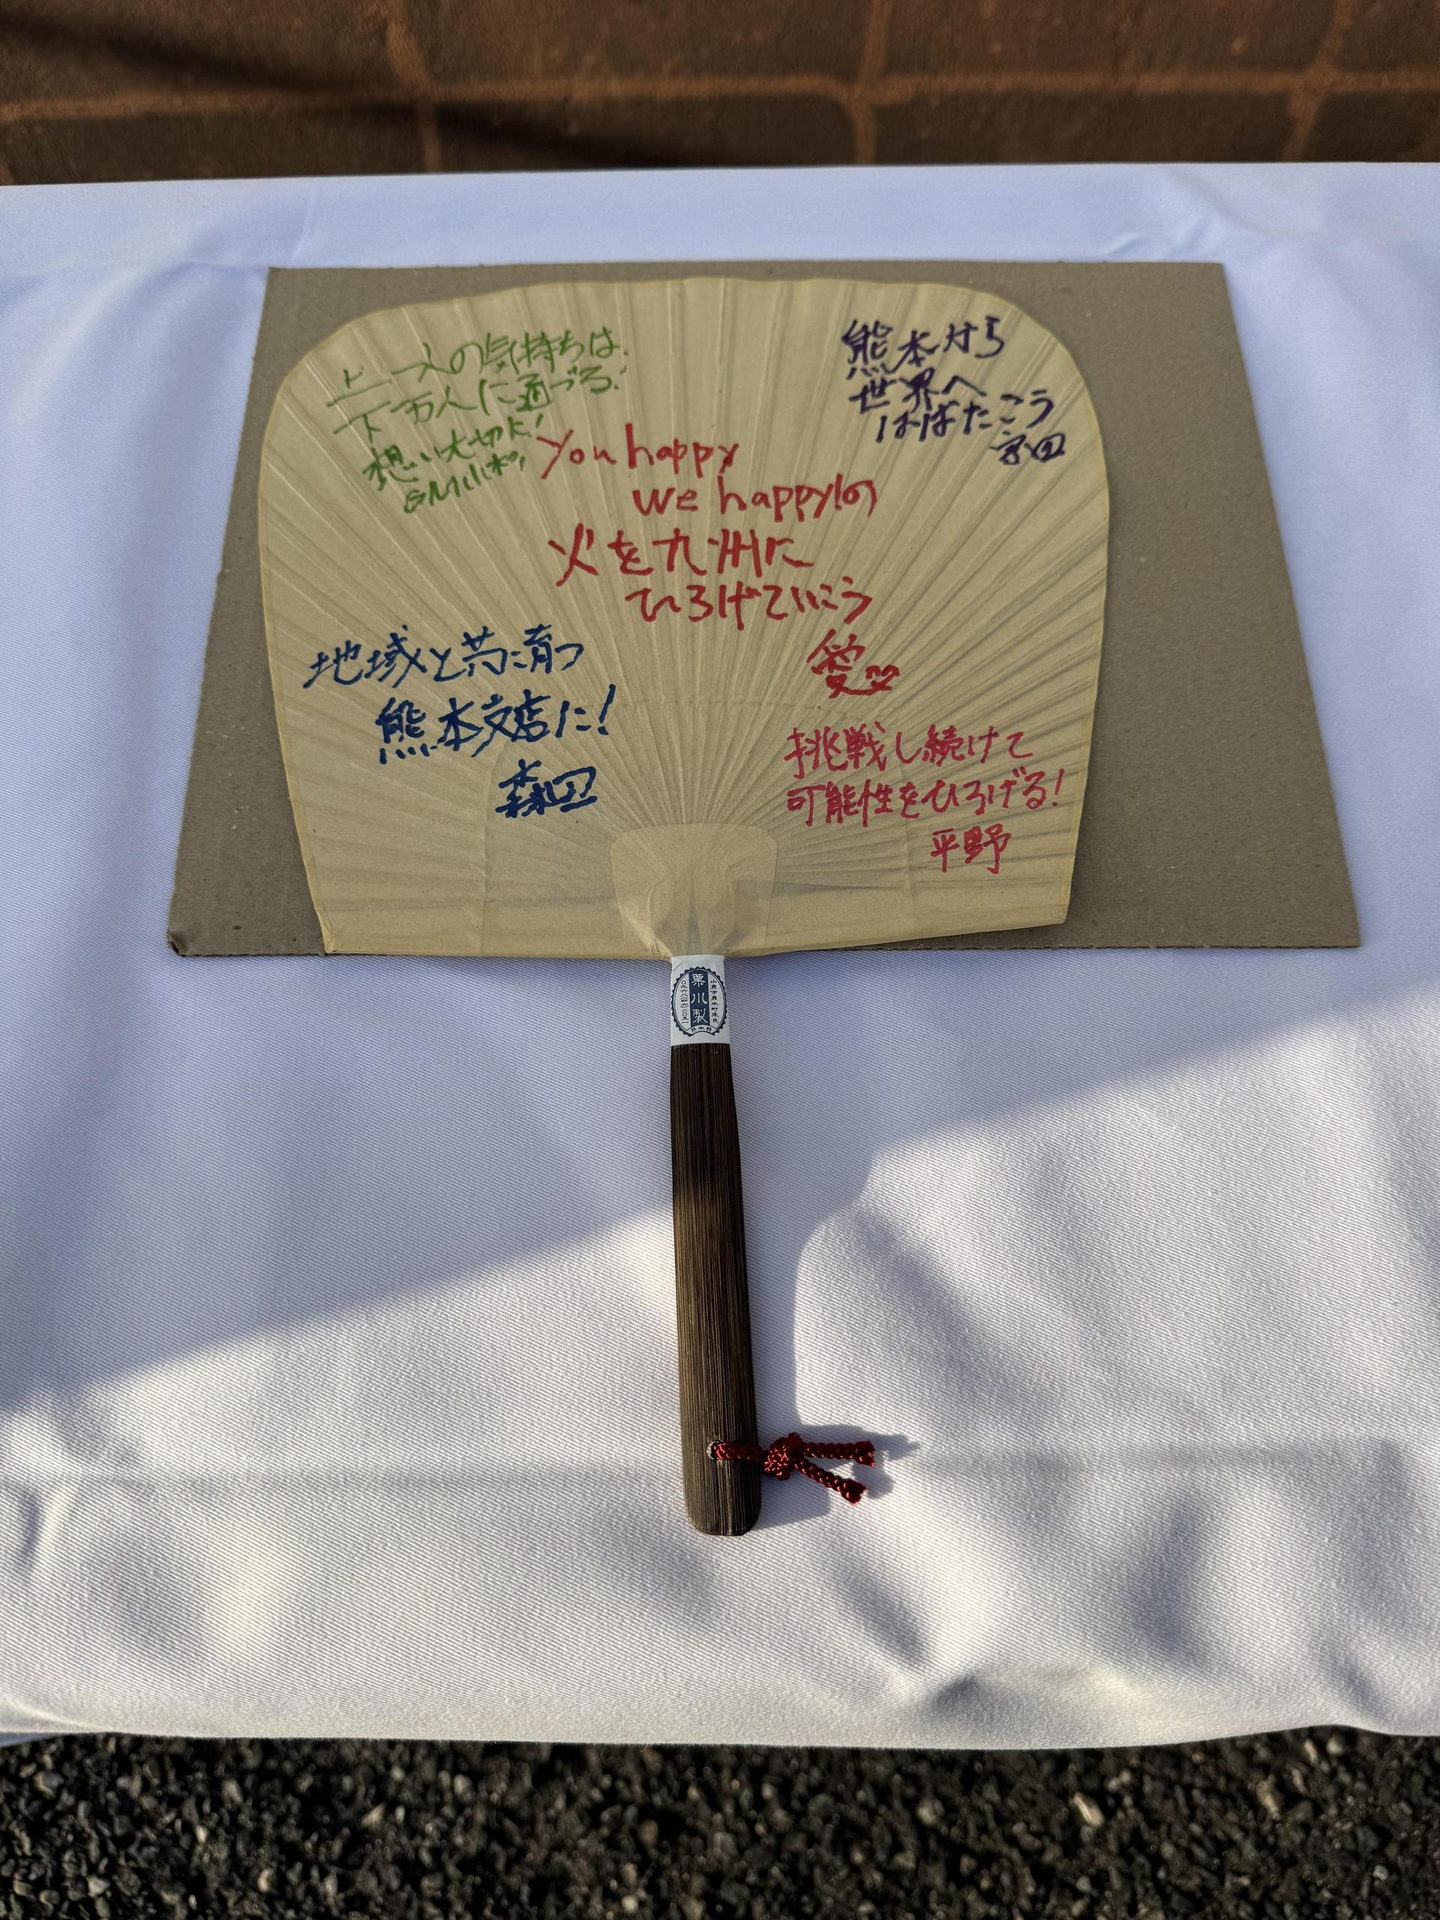 上一人の気持ちは
下万人に通づる!
想い大切に!
熊本から
世界へ
はばたこう
you happy
we happy!の
火を九州に
ひろげていこう
愛
地域と共に育つ
熊本支店に!
森田
挑戦し続けて
可能性をひろげる!
平野
栗川製